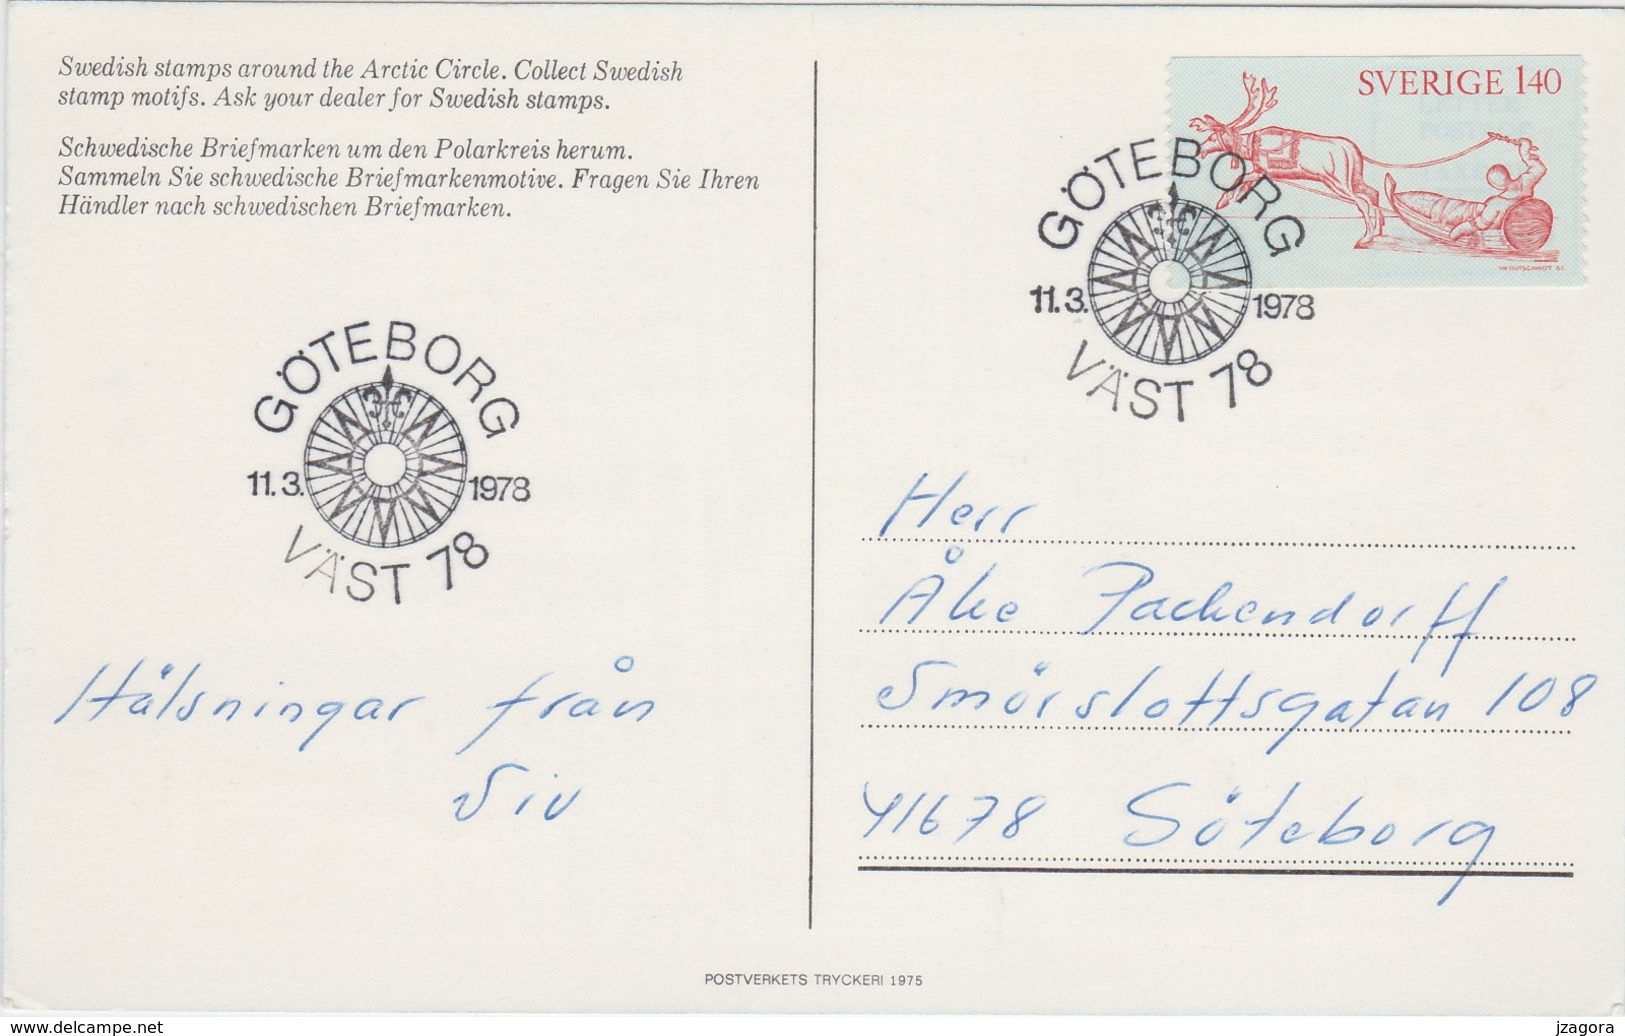 Swedish stamps around the Arctic Circle. Collect Swedish
stamp motifs. Ask your dealer for Swedish stamps.
Schwedische Briefmarken um den Polarkreis herum.
Sammeln Sie schwedische Briefmarkenmotive. Fragen Sie Ihren
Händler nach schwedischen Briefmarken.
GÖTEBORG
11.3. 1978
VÄST 78
Hälsningar från
Siv
SVERIGE 140
GÖTEBORG
11.3. 1978
VÄST 78
Herr
Åke Packendorff
Smörslottsgatan 108
41678 Göteborg
POSTVERKETS TRYCKERI 1975
www.delcampe.net
jzagora